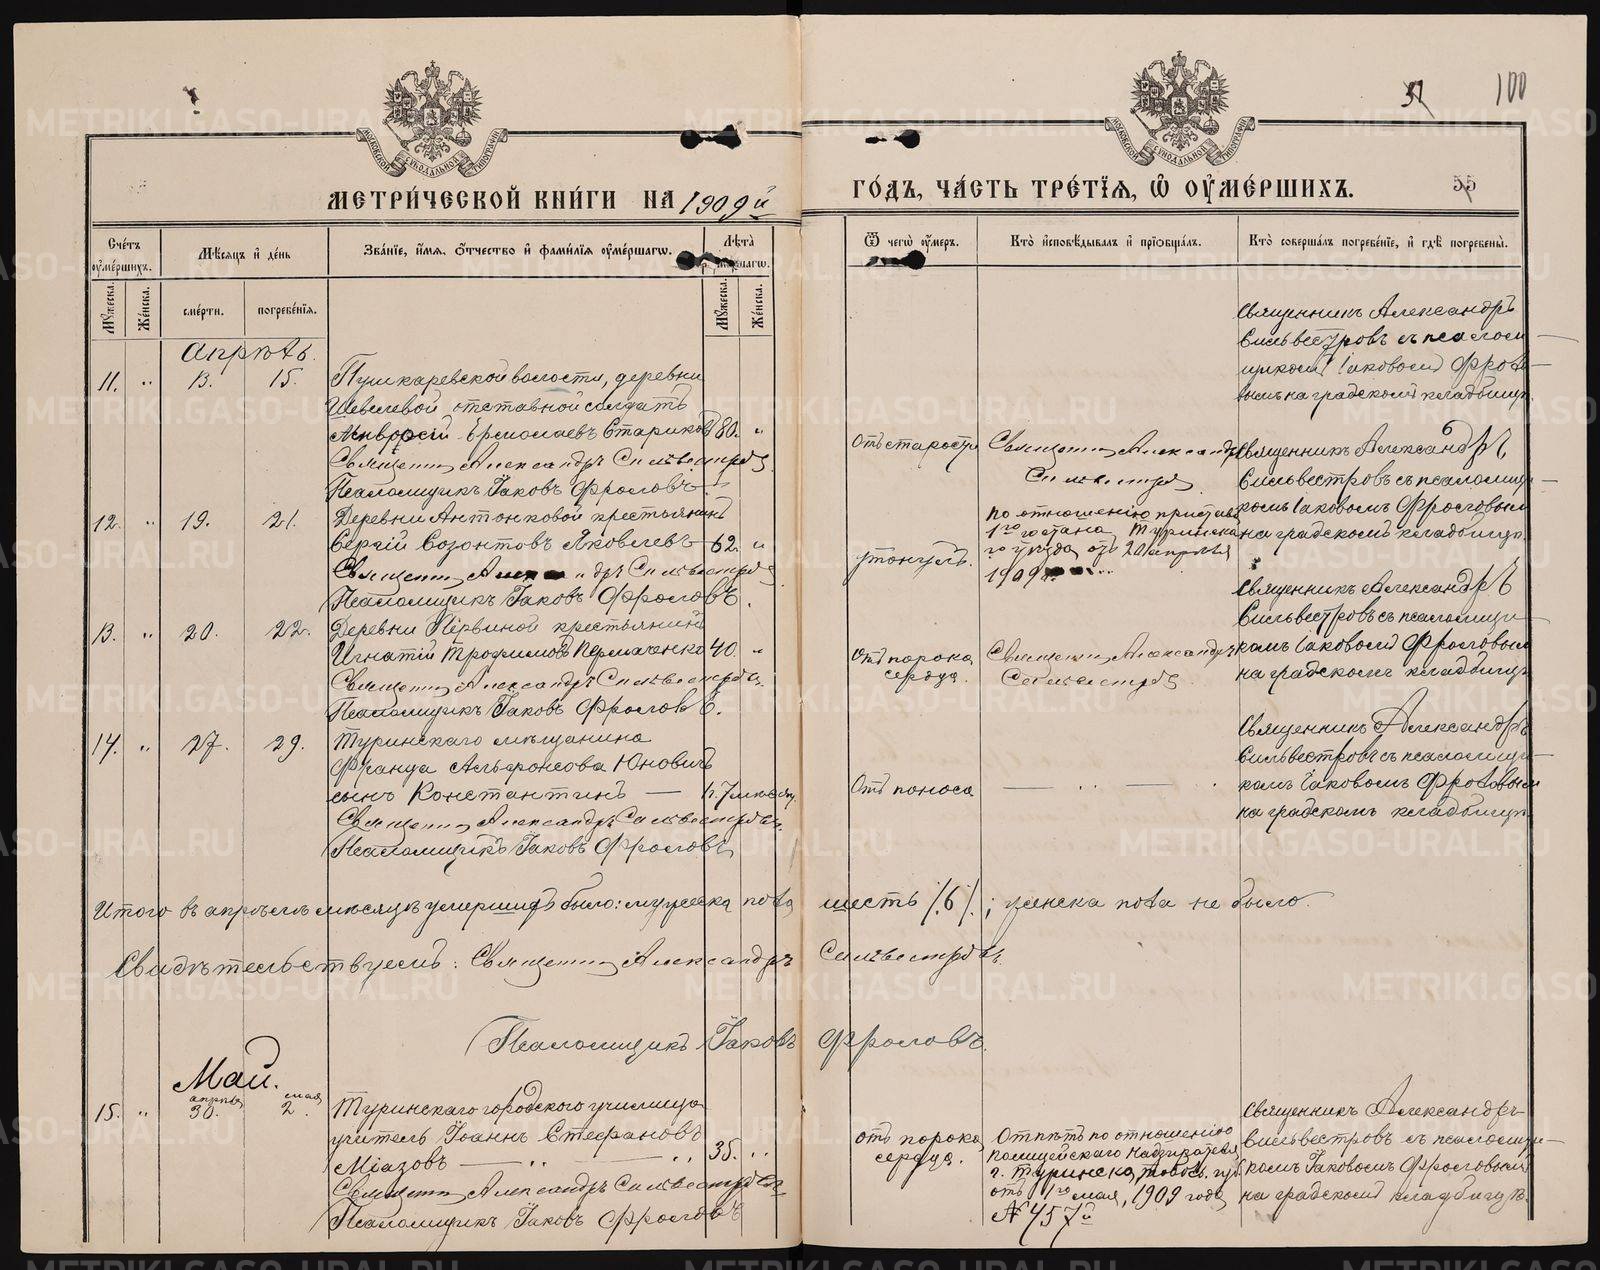 100
МОСКОВСКОЙ СѴНОДАЛЬНОЙ ТИПОГРАФІИ
МОСКОВСКОЙ СѴНОДАЛЬНОЙ ТИПОГРАФІИ
МЕТРИ́ЧЕСКОЙ КНИ́ГИ НА 1909й
ГО́ДЪ, ЧА́СТЬ ТРЕ́ТЇЯ, Ѿ ОУМЕ́РШИХЪ.
55
Сче́тъ оуме́ршихъ.
Мѣсяцъ и де́нь
Зва́нїе, и́мя, о́тчество и фами́лїя оуме́ршагѡ.
Лѣта̀
Му́жеска.
Же́нска.
сме́рти.
погребе́нїя.
Му́жеска.
Же́нска.
Ѿ чегѡ̀ оу́меръ.
Кто̀ исповѣ́дывалъ и прїѡбща́лъ.
Кто̀ соверша́лъ погребе́нїе, и гдѣ̀ погребены̀.
Апрѣль.
11. „ 13. 15.
Пушкаревской волости, деревни
Шевелевой отставной солдатъ
Ермолаевъ Стариковъ 80. „
Священникъ Александръ Сильвестровъ
Псаломщикъ Іаковъ Фроловъ.
Отъ старости
Священникъ Александръ
Сильвестровъ
Священникъ Александръ
Сильвестровъ съ псалом-
щикомъ Іаковомъ Фроло-
вымъ на градскомъ кладбищѣ.
12. „ 19. 21.
Деревни Антонковой крестьянинъ
Сергій Созонтовъ Яковлевъ 62. „
Священникъ Александръ Сильвестровъ
Псаломщикъ Іаковъ Фроловъ.
утонулъ.
По отношенію пристава
1го стана Туринска-
го уѣзда отъ 20 апрѣля
1909 г.
Священникъ Александръ
Сильвестровъ съ псаломщи-
комъ Іаковомъ Фроловымъ
на градскомъ кладбищѣ.
13. „ 20. 22.
Деревни Первиной крестьянинъ
Игнатій Трофимовъ Пермяченко 40. „
Священникъ Александръ Сильвестровъ.
Псаломщикъ Іаковъ Фроловъ.
Отъ порока
сердца.
Священникъ Александръ
Сильвестровъ.
Священникъ Александръ
Сильвестровъ съ псаломщи-
комъ Іаковомъ Фроловымъ
на градскомъ кладбищѣ
14. „ 27. 29.
Туринскаго мѣщанина
Франца Альфонсова Юновичъ
сынъ Константинъ — 7 мѣсяц.
Священникъ Александръ Сильвестровъ.
Псаломщикъ Іаковъ Фроловъ
Отъ поноса
— „ —
Священникъ Александръ
Сильвестровъ съ псаломщи-
комъ Іаковомъ Фроловымъ
на градскомъ кладбищѣ.
Итого въ апрѣлѣ мѣсяцѣ умершихъ было: мужеска пола шесть /6/; женска пола не было.
Свидѣтельствуемъ: Священникъ Александръ Сильвестровъ.
Псаломщикъ Іаковъ Фроловъ.
Май.
апрѣля мая
15. „ 30. 2.
Туринскаго городского училища
учитель Іоаннъ Стефановъ
Міазовъ — „ — „ 35. „
Священникъ Александръ Сильвестровъ
Псаломщикъ Іаковъ Фроловъ
отъ порока
сердца.
Отпѣтъ по отношенію
полицейскаго надзирателя
г. Туринска, Тобол. губ.
отъ 1го мая, 1909 года
№ 457й
Священникъ Александръ
Сильвестровъ съ псаломщи-
комъ Іаковомъ Фроловымъ
на градскомъ кладбищѣ.
METRIKI.GASO-URAL.RU